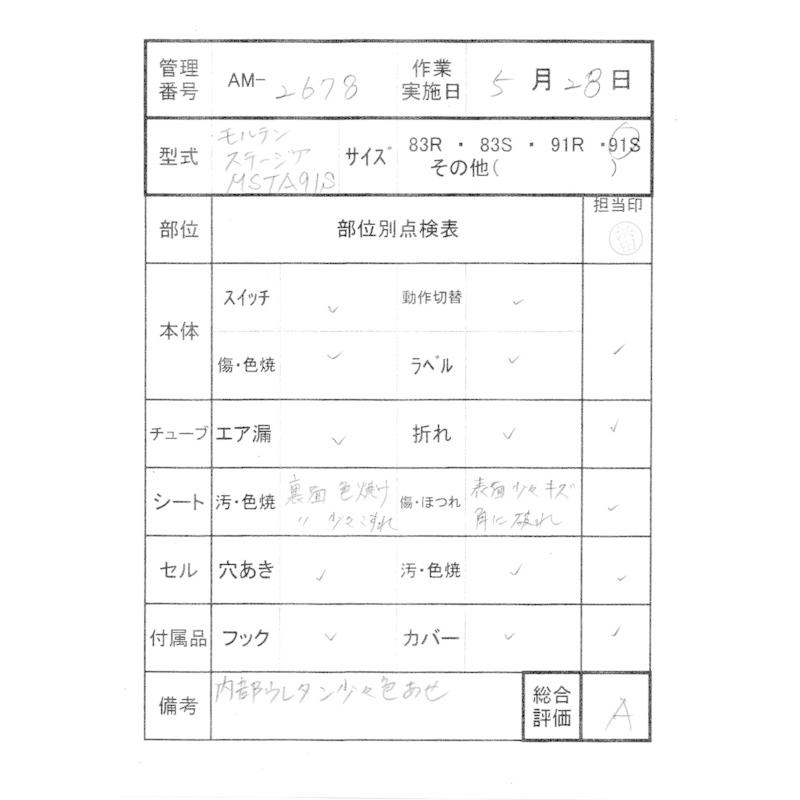 管理番号 AM-2678 作業実施日 5月28日
型式 モルテン ステージア MSTA91S サイズ 83R ・ 83S ・ 91R ・ 91S
その他( )
部位 部位別点検表 担当印
本体 スイッチ ✓ 動作切替 ✓
傷・色焼 ✓ ラベル ✓ ✓
チューブ エア漏 ✓ 折れ ✓ ✓
シート 汚・色焼 裏面 色焼け 〃 少々こすれ 傷・ほつれ 表面少々キズ 角に破れ ✓
セル 穴あき ✓ 汚・色焼 ✓ ✓
付属品 フック ✓ カバー ✓ ✓
備考 内部ウレタン少々色あせ 総合評価 A